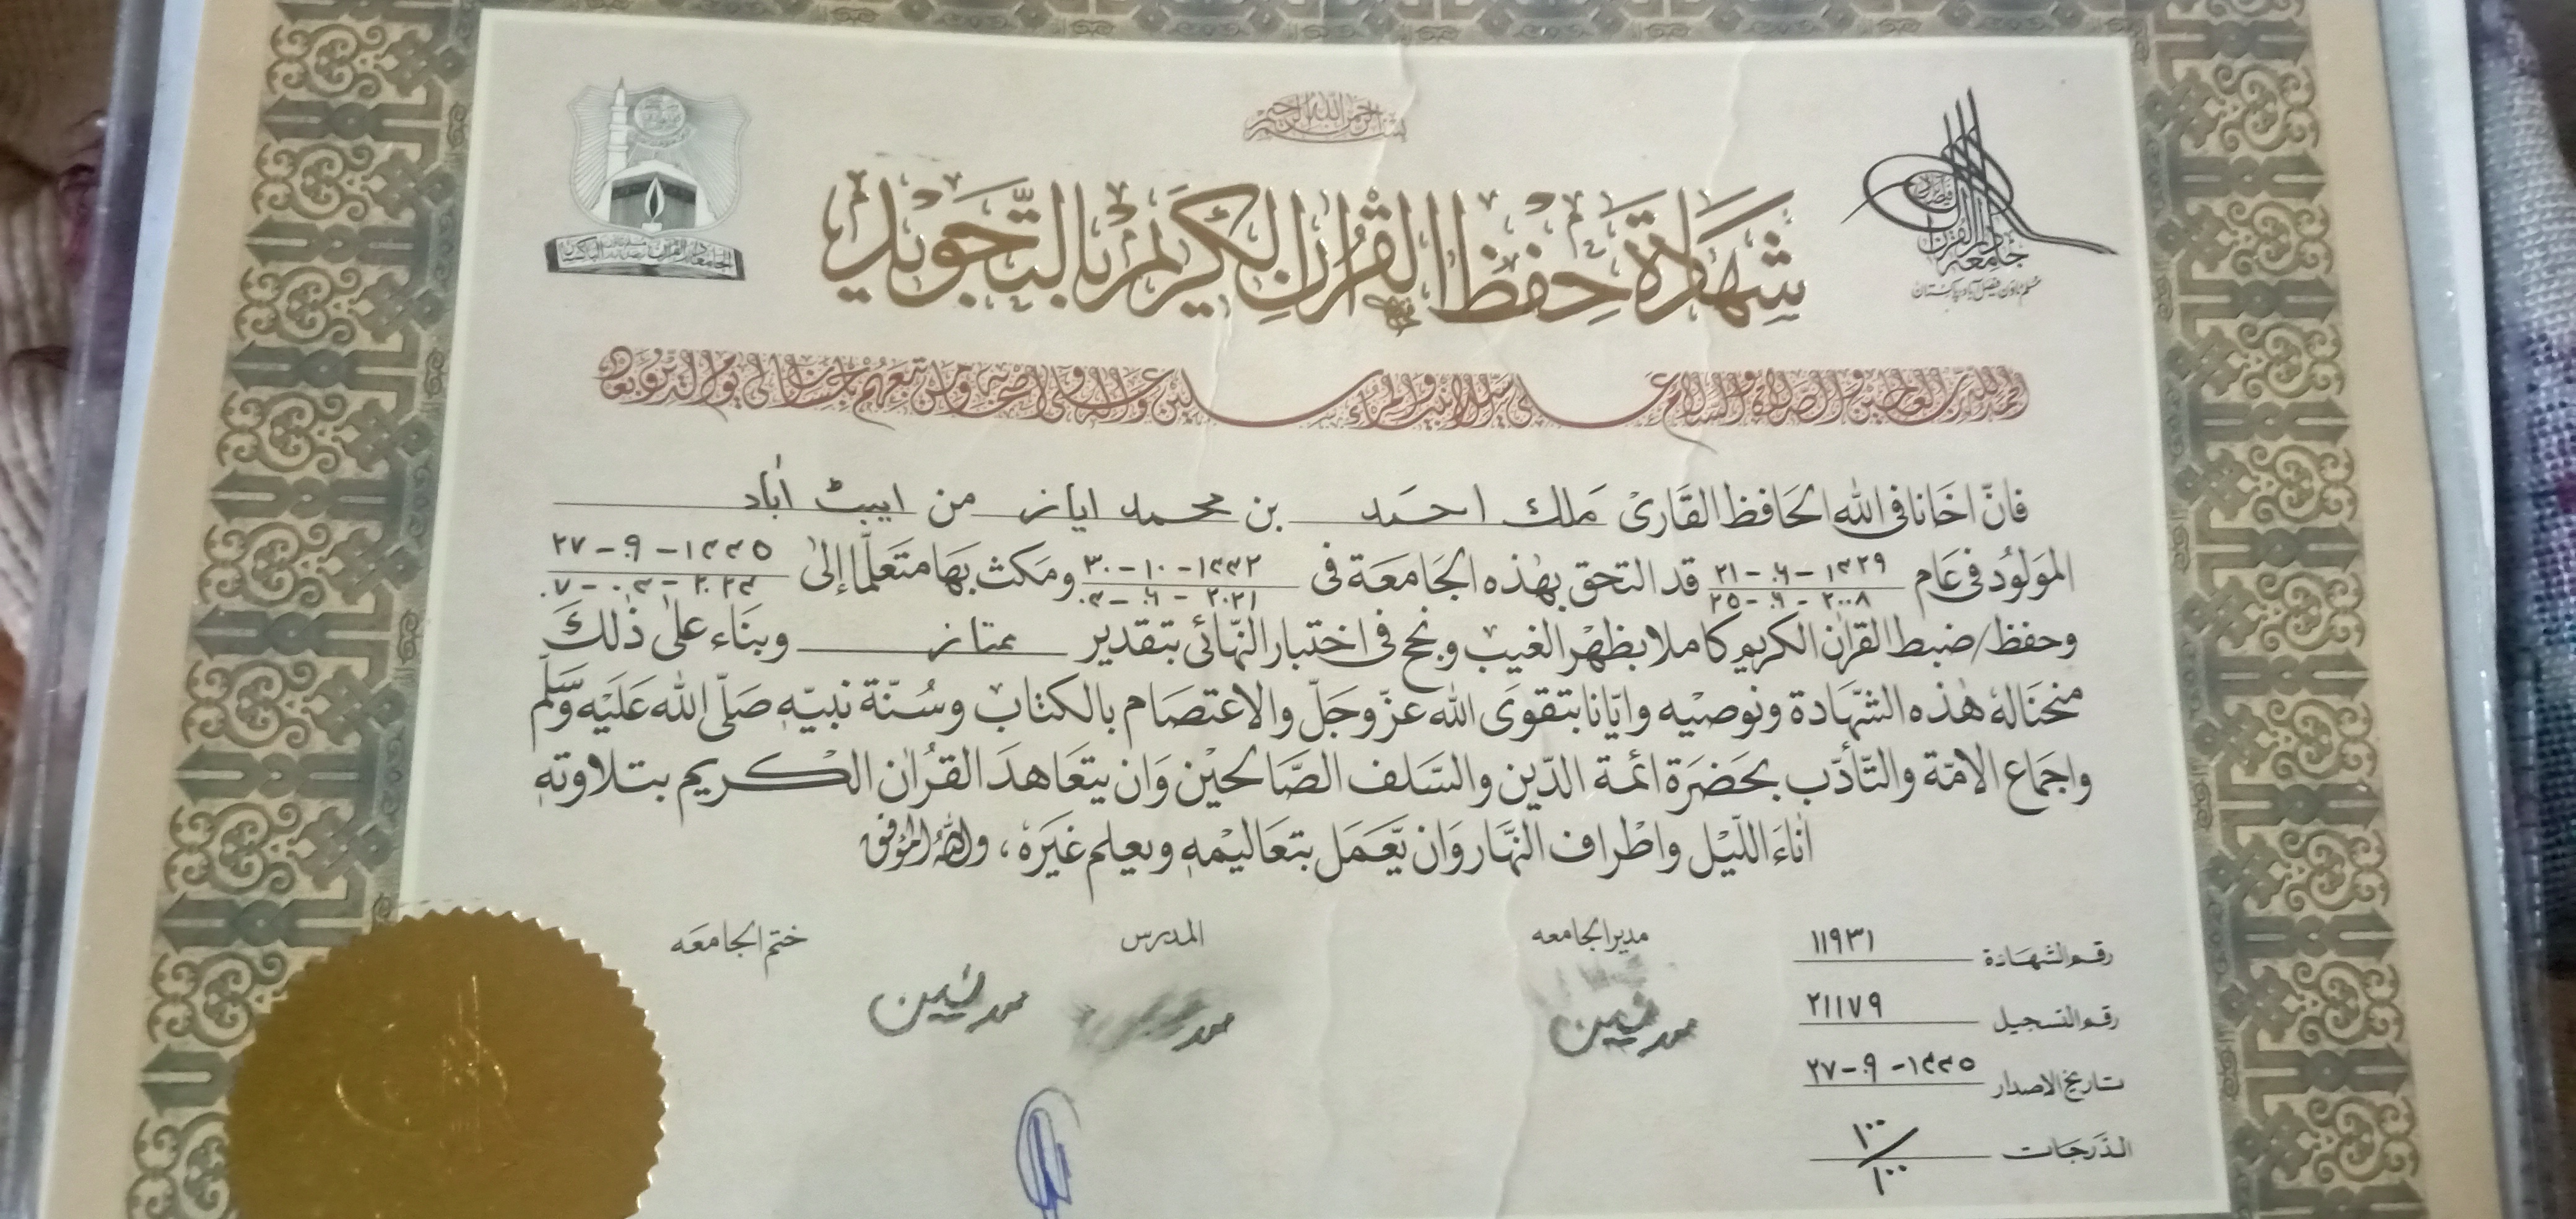 بسم الله الرحمن الرحيم
جامعة دار القرآن
فيصل آباد
مسلم ٹاؤن فیصل آباد پاکستان
شهادة حفظ القرآن الكريم بالتجويد
الحمد لله رب العالمين والصلاة والسلام على سيد الانبياء والمرسلين وعلى اله واصحابه ومن تبعهم باحسان الى يوم الدين وبعد
فانّ اخانا فى الله الحافظ القارئ ملك احمد بن محمد اياز من ايبٹ اٰباد
المولود فى عام ٢١-٠٦-١٤٢٩ قد التحق بهٰذه الجامعة فى ٣٠-١٠-١٤٤٢ ومكث بها متعلّما إلىٰ ٢٧-٠٩-١٤٤٥
٢٥-٠٦-٢٠٠٨ ٠٤-٠٦-٢٠٢١ ٠٧-٠٤-٢٠٢٤
وحفظ/ضبط القراٰن الكريم كاملا بظهر الغيب ونجح فى اختبار النّهائى بتقدير ممتاز وبناء علىٰ ذٰلك
منحناله هٰذه الشّهادة ونوصيه وايّانا بتقوى الله عزّوجلّ والاعتصام بالكتاب وسُنّة نبيّه صلّى الله عَلَيْه وَسَلَّم
واجماع الامّة والتّأدّب بحضرة ائمة الدّين والسّلف الصّالحيْن وَان يتعاهدَ القرُاٰن الكريم بتلاوته
اٰناءَ اللّيْل واطْراف النّهَار وَان يَّعمَل بتعَاليْمه ويعلم غيَرَهٗ، والله الموُفق
رقم الشهادة ١١٩٣١
رقم التسجيل ٢١١٧٩
تاريخ الاصدار ٢٧-٠٩-١٤٤٥
الدّرجات ١٠٠/١٠٠
مدير الجامعه
المدرس
ختم الجامعَه